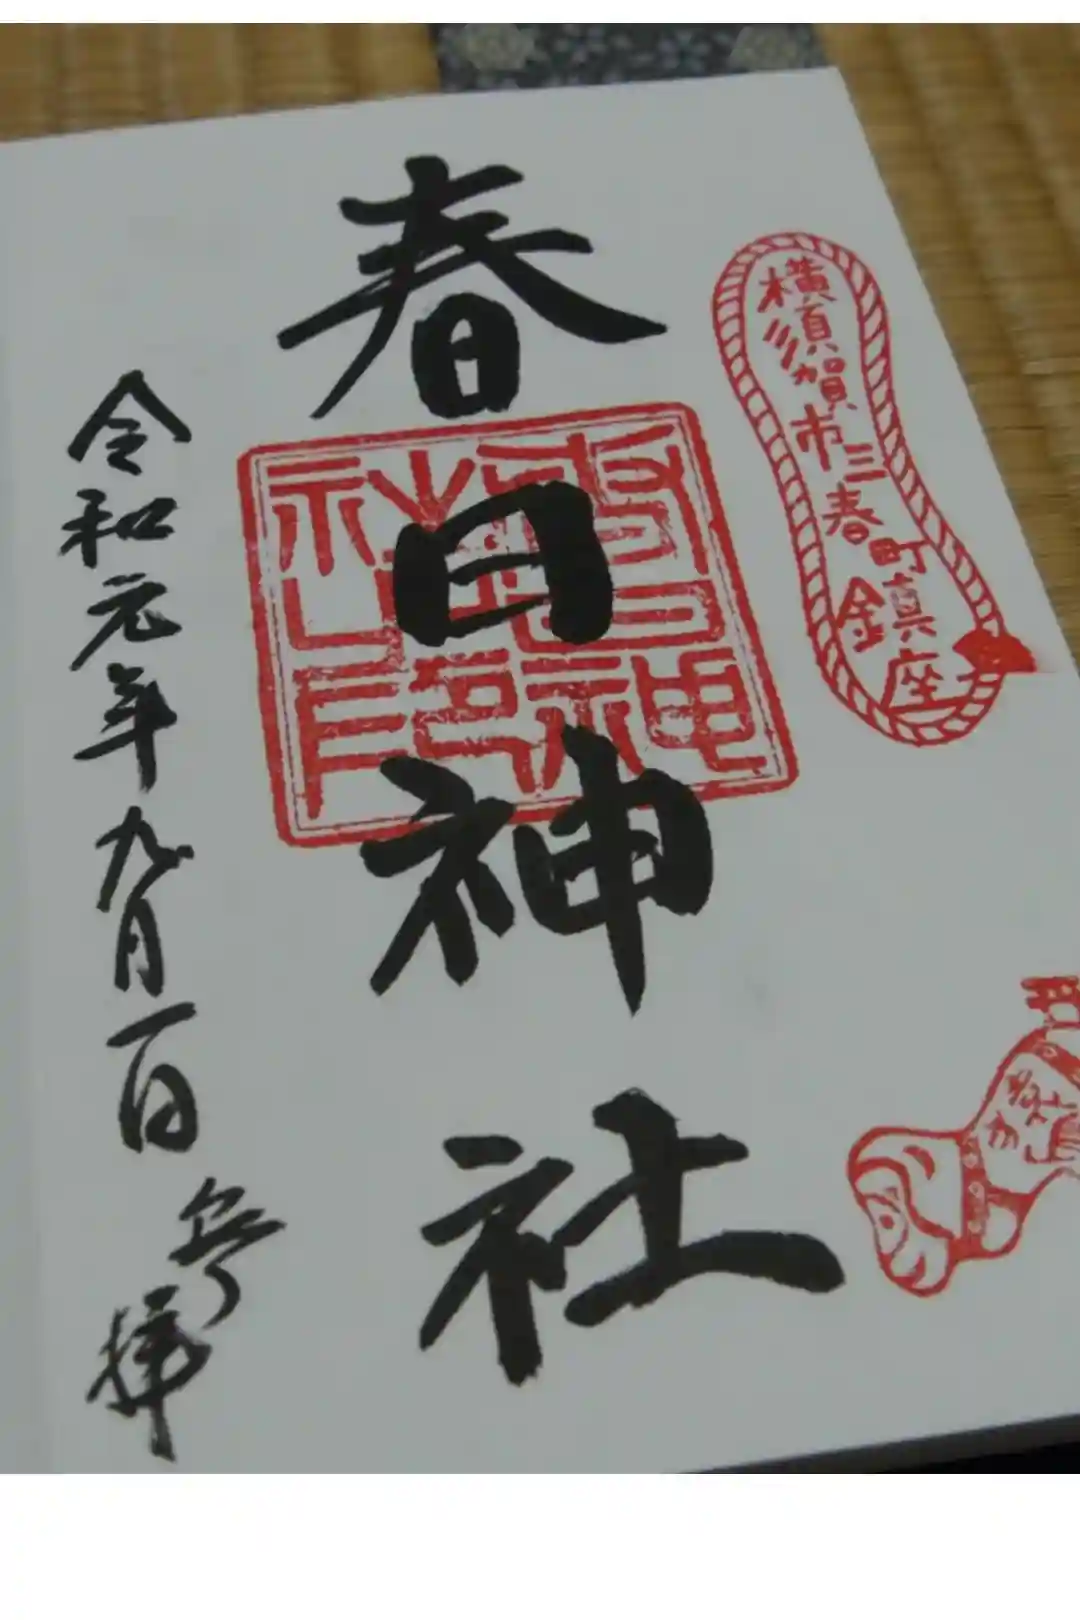 横須賀市三春町鎮座
春日神社
春日神社之印
令和元年九月一日
参拝